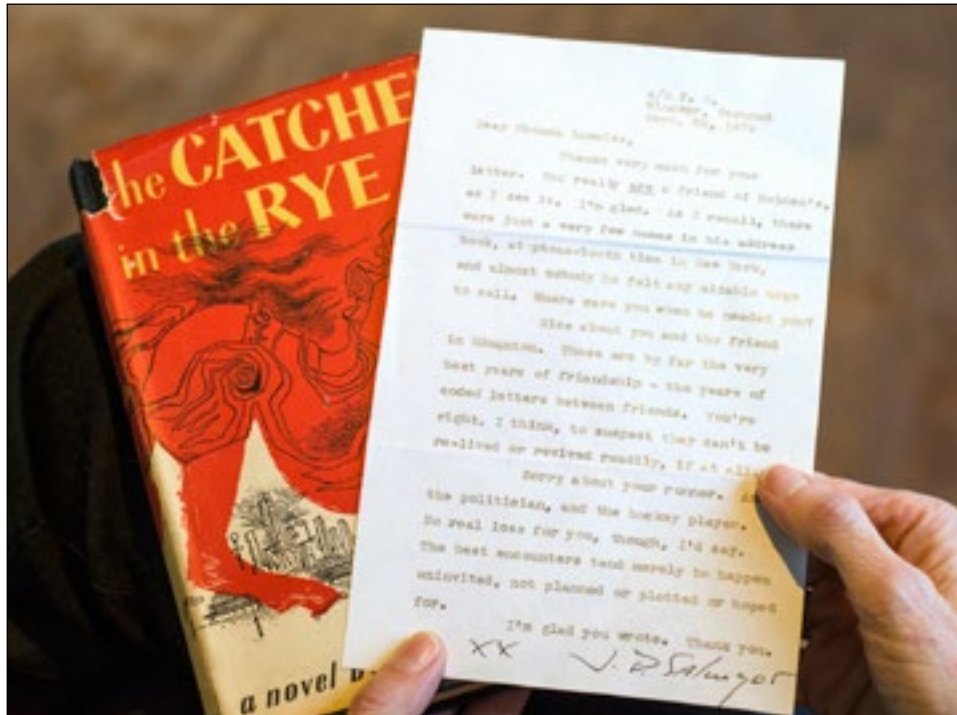 the CATCHE
in the RYE
a novel
Windsor, Vermont
Dear
Thanks very much for your
letter. You really are a friend of Holden's,
as I see it. I'm glad. As I recall, there
were just a very few names in his address
book, at phone-booth time in New York,
and almost nobody he felt any sizable urge
to call. Where were you when he needed you?
Nice about you and the friend
in Houston. Those are by far the very
best years of friendship - the years of
ended letters between friends. You're
right, I think, to suspect they can't be
re-lived or revived readily, if at all
Sorry about your runner.
the politician, and the hockey player.
No real loss for you, though, I'd say.
The best encounters tend merely to happen
uninvited, not planned or plotted or hoped
for.
I'm glad you wrote. Thank you.
XX J. D. Salinger